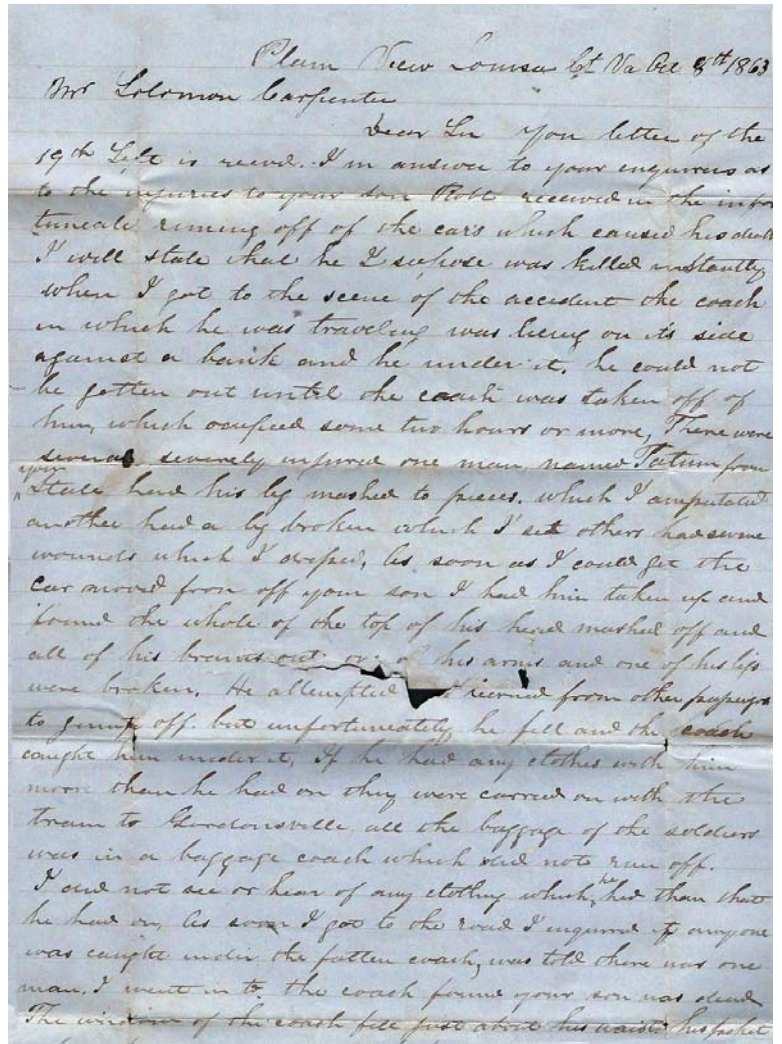 Plain View Louisa Ct Va Oct 8th 1863
Mr Solomon Carpenter
Dear Sir You letter of the
19th Sept is recevd. I in answer to your inquires as
to the injuries to your son Robt received in the infor
tunate runing off of the cars which caused his death
I will state that he I supose was killed instantly
when I got to the scene of the accident the coach
in which he was traveling was lieing on its side
against a bank and he under it. he could not
be gotten out until the coach was taken off of
him, which ocupied some two hours or more, There were
several severely injured one man named Tatum from
your
State had his leg mashed to pieces. which I amputated
another had a leg broken which I set others had severe
wounds which I dressed, As soon as I could get the
car moved from off your son I had him taken up and
found the whole of the top of his head mashed off and
all of his brains out of his arms and one of his legs
were broken. He attempted from other
to jump off. but unfortunately he fell and the coach
caught him under it, If he had any clothes with him
more than he had on they were carried on with the
train to Gordonsville, all the baggage of the soldiers
was in a baggage coach which did not run off.
I did not see or hear of any clothing which he had than that
he had on, As soon I got to the road I inquired if any one
was caught under the fallen coach, was told there was one
man. I went in to the coach found your son was dead
The window of the coach fell just about his waist his pocket